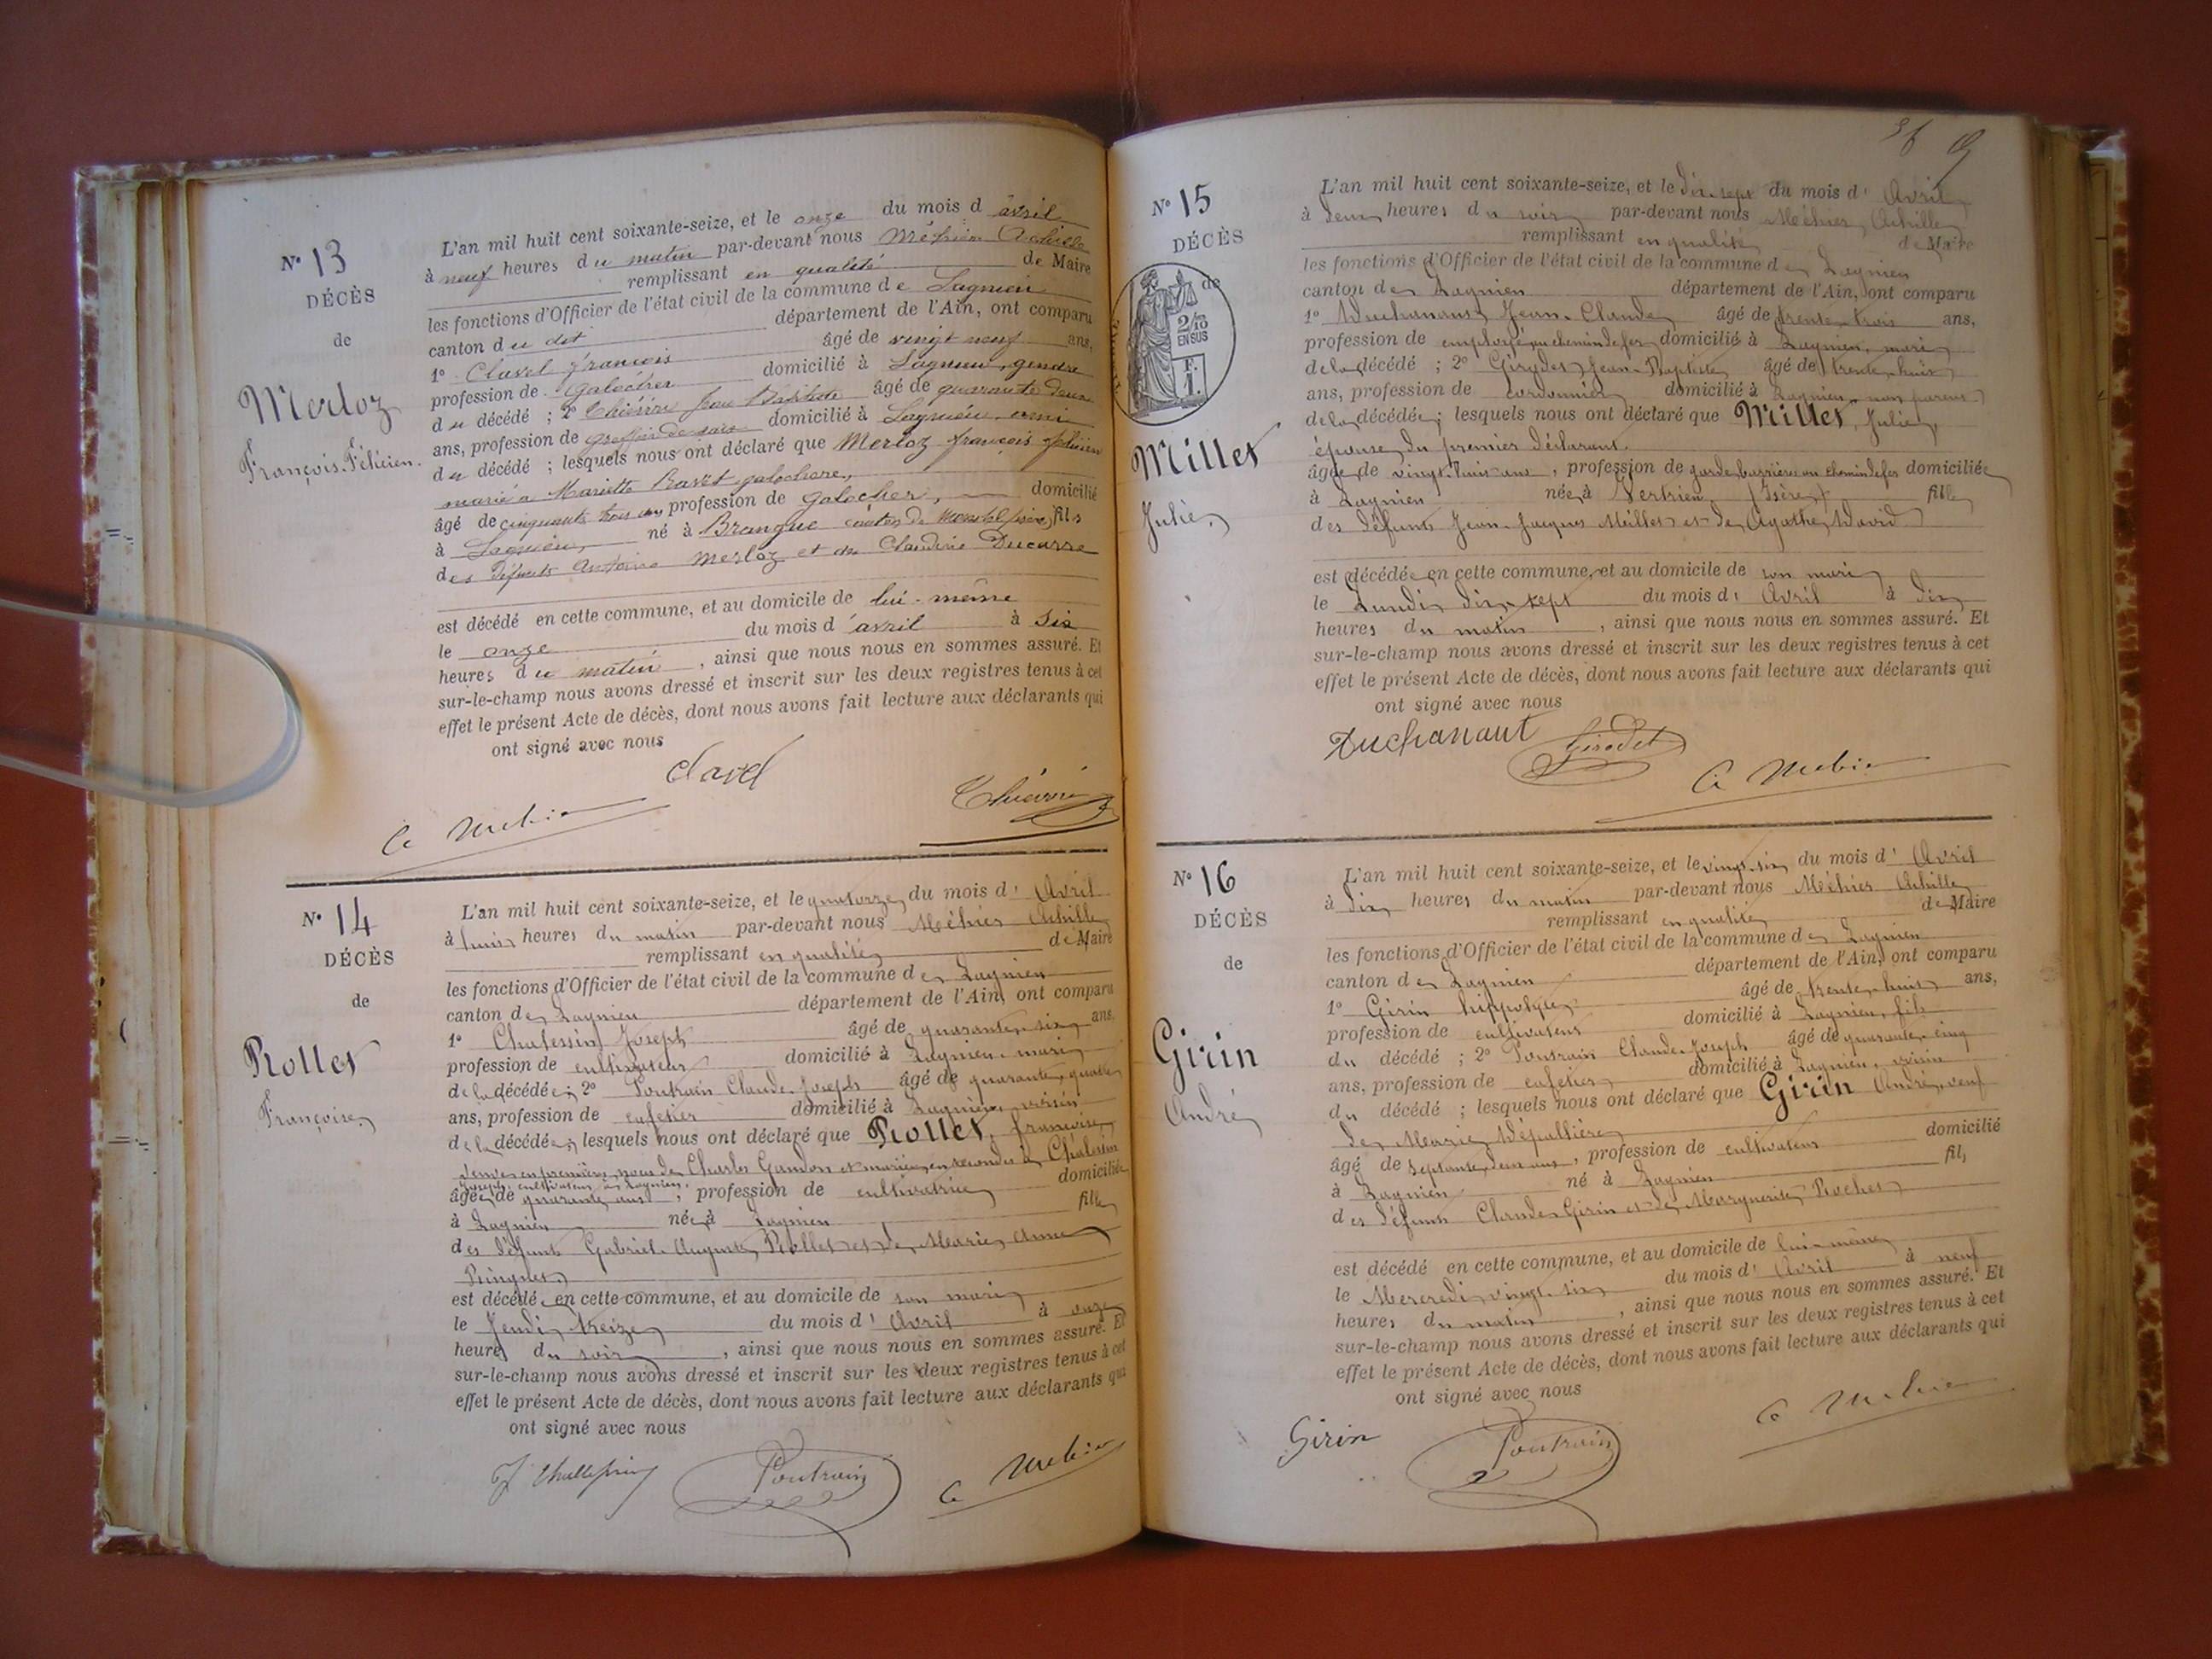 N° 13
DÉCÈS
de
Merloz
François-Félicien.
L'an mil huit cent soixante-seize, et le onze du mois d avril
à neuf heures du matin par-devant nous Méhier Achille
remplissant en qualité de Maire
les fonctions d'Officier de l'état civil de la commune de Lagnieu
canton du dit département de l'Ain, ont comparu
1° Clavel françois âgé de vingt neuf ans,
profession de galocher domicilié à Lagnieu, gendre
du décédé ; 2° Thiévin Jean Baptiste âgé de quarante deux
ans, profession de greffier de paix domicilié à Lagnieu, ami
du décédé ; lesquels nous ont déclaré que Merloz françois félicien
marié à Mariette Ravet galochere,
âgé de cinquante trois ans profession de galocher, domicilié
à Lagnieu, né à Brangue canton de (isère) fils
des défunts Antoine Merloz et de Claudine Ducarre
est décédé en cette commune, et au domicile de lui-même
le onze du mois d'avril à six
heures du matin, ainsi que nous nous en sommes assuré. Et
sur-le-champ nous avons dressé et inscrit sur les deux registres tenus à cet
effet le présent Acte de décès, dont nous avons fait lecture aux déclarants qui
ont signé avec nous
Clavel
A Mehier
N° 14
DÉCÈS
de
Rollet
Françoise,
L'an mil huit cent soixante-seize, et le quatorze du mois d' Avril
à heures du matin par-devant nous Méhier Achille
remplissant en qualité de Maire
les fonctions d'Officier de l'état civil de la commune de Lagnieu
canton de Lagnieu département de l'Ain, ont comparu
1° Chalessin Joseph âgé de quarante-six ans,
profession de cultivateur domicilié à Lagnieu, mari
de la décédée ; 2° Poutrain Claude-Joseph âgé de quarante-quatre
ans, profession de cafetier domicilié à Lagnieu, voisin
de la décédée ; lesquels nous ont déclaré que Rollet, françoise,
veuve en premières noces de Charles Gandon et mariée en secondes à Chalessin
Joseph, cultivateur à Lagnieu,
âgée de quarante ans, profession de cultivatrice domiciliée
à Lagnieu née à Lagnieu fille
des défunts Gabriel-Auguste Rollet et de Marie Anne
Ringuet
est décédée en cette commune, et au domicile de son mari
le Jeudi treize du mois d' Avril à onze
heures du soir, ainsi que nous nous en sommes assuré. Et
sur-le-champ nous avons dressé et inscrit sur les deux registres tenus à cet
effet le présent Acte de décès, dont nous avons fait lecture aux déclarants qui
ont signé avec nous
J Challessin Poutrain A Mehier
N° 15
DÉCÈS
de
2/10
EN SUS
F.
1.
Millet
Julie,
L'an mil huit cent soixante-seize, et le dix-sept du mois d' Avril
à deux heures du soir par-devant nous Méhier, Achille
remplissant en qualité de Maire
les fonctions d'Officier de l'état civil de la commune de Lagnieu
canton de Lagnieu département de l'Ain, ont comparu
1° Duchanaut Jean-Claude âgé de trente-trois ans,
profession de employé au chemin de fer domicilié à Lagnieu, mari
de la décédé ; 2° Girodet Jean-Baptiste âgé de trente-huit
ans, profession de cordonnier domicilié à Lagnieu, non parent
de la décédée ; lesquels nous ont déclaré que Millet, Julie,
épouse du premier déclarant.
âgée de vingt-huit ans, profession de garde-barrière au chemin de fer domiciliée
à Lagnieu née à Vertrieu (Isère) fille
des défunts Jean-Jacques Millet et de Agathe David
est décédée en cette commune, et au domicile de son mari
le Lundi dix-sept du mois d' Avril à dix
heures du matin, ainsi que nous nous en sommes assuré. Et
sur-le-champ nous avons dressé et inscrit sur les deux registres tenus à cet
effet le présent Acte de décès, dont nous avons fait lecture aux déclarants qui
ont signé avec nous
Duchanaut Girodet
A Mehier
N° 16
DÉCÈS
de
Girin
André
L'an mil huit cent soixante-seize, et le vingt-six du mois d' Avril
à dix heures du matin par-devant nous Méhier Achille
remplissant en qualité de Maire
les fonctions d'Officier de l'état civil de la commune de Lagnieu
canton de Lagnieu département de l'Ain, ont comparu
1° Girin hippolyte âgé de trente-huit ans,
profession de cultivateur domicilié à Lagnieu, fils
du décédé ; 2° Poutrain Claude-Joseph âgé de quarante-cinq
ans, profession de cafetier domicilié à Lagnieu, voisin
du décédé ; lesquels nous ont déclaré que Girin André, veuf
de Marie Dépallière
âgé de septante-deux ans, profession de cultivateur domicilié
à Lagnieu né à Lagnieu fils
des défunts Claude Girin et de Marguerite Rochet
est décédé en cette commune, et au domicile de lui-même
le Mercredi vingt-six du mois d' Avril à neuf
heures du matin, ainsi que nous nous en sommes assuré. Et
sur-le-champ nous avons dressé et inscrit sur les deux registres tenus à cet
effet le présent Acte de décès, dont nous avons fait lecture aux déclarants qui
ont signé avec nous
Girin Poutrain A Mehier